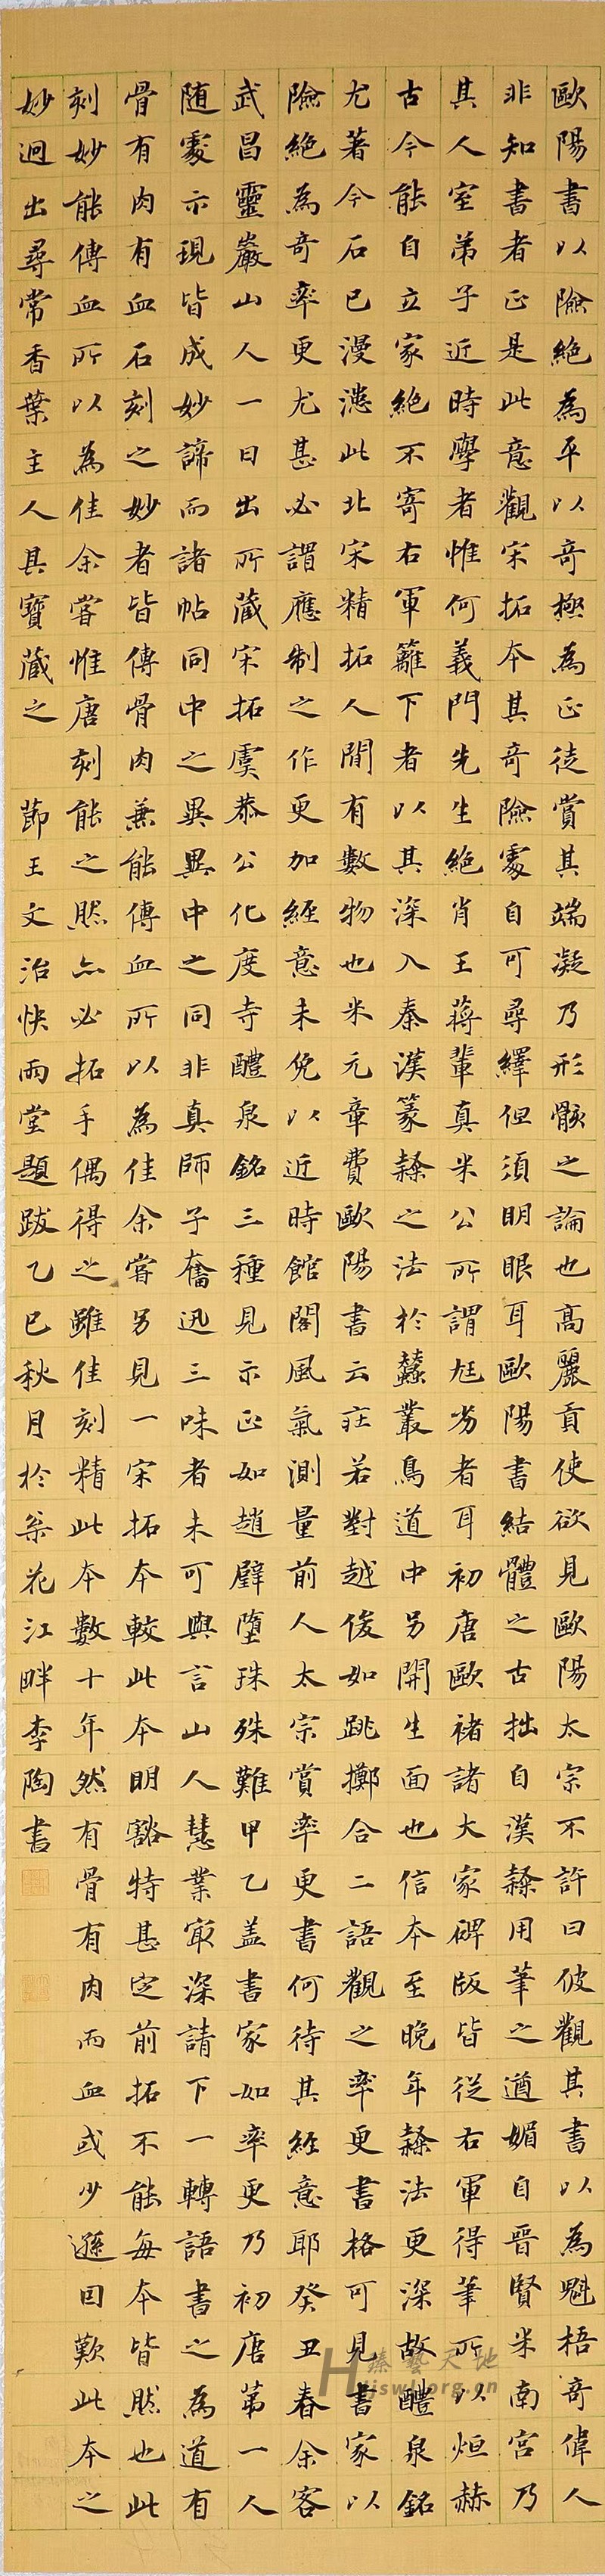 歐陽書以險絕為平以奇極為正徒賞其端凝乃形骸之論也高麗貢使欲見歐陽太宗不許曰彼觀其書以為魁梧奇偉人
非知書者正是此意觀宋拓本其奇險處自可尋繹但須明眼耳歐陽書結體之古拙自漢隸用筆之遒媚自晉賢米南宮乃
其人室弟子近時學者惟何義門先生絕肖王蔣輩真米公所謂尪劣者耳初唐歐褚諸大家碑版皆從右軍得筆所以烜赫
古今能自立家絕不寄右軍籬下者以其深入秦漢篆隸之法於蠶叢鳥道中另開生面也信本至晚年隸法更深故醴泉銘
尤著今石已漫漶此北宋精拓人間有數物也米元章費歐陽書云莊若對越俊如跳擲合二語觀之率更書格可見書家以
險絕為奇率更尤甚必謂應制之作更加經意未免以近時館閣風氣測量前人太宗賞率更書何待其經意耶癸丑春余客
武昌靈巖山人一日出所藏宋拓虞恭公化度寺醴泉銘三種見示正如趙璧墮珠殊難甲乙蓋書家如率更乃初唐第一人
随處示現皆成妙諦而諸帖同中之異異中之同非真師子奮迅三味者未可與言山人慧業寂深請下一轉語書之為道有
骨有肉有血石刻之妙者皆傳骨肉兼能傳血所以為佳余嘗另見一宋拓本較此本明豁特甚定前拓不能每本皆然也此
刻妙能傳血所以為佳余嘗惟唐刻能之然亦必拓手偶得之雖佳刻精此本數十年然有骨有肉而血或少遜因歎此本之
妙迥出尋常香葉主人其寶藏之 節王文治快雨堂題跋乙巳秋月於桒花江畔李陶書
臻藝天地
Hjswj.org.cn